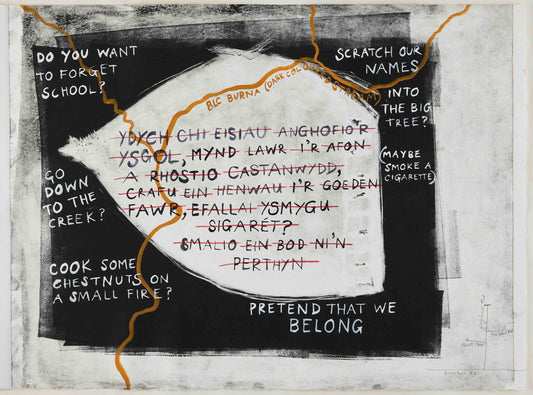 DO YOU WANT
TO FORGET
SCHOOL?
SCRATCH OUR
NAMES
INTO
THE BIG
TREE?
(MAYBE
SMOKE A
CIGARETTE)
YDYCH CHI EISIAU ANGHOFIO'R
YSGOL, MYND LAWR I'R AFON
A RHOSTIO CASTANWYDD,
CRAFU EIN HENWAU I'R GOEDEN
FAWR, EFALLAI YSMYGU
SIGARÉT?
SMALIO EIN BOD NI'N
PERTHYN
GO
DOWN
TO THE
CREEK?
COOK SOME
CHESTNUTS ON
A SMALL FIRE?
PRETEND THAT WE
BELONG
BLC BURNA (DARK COLOURED STREAM)